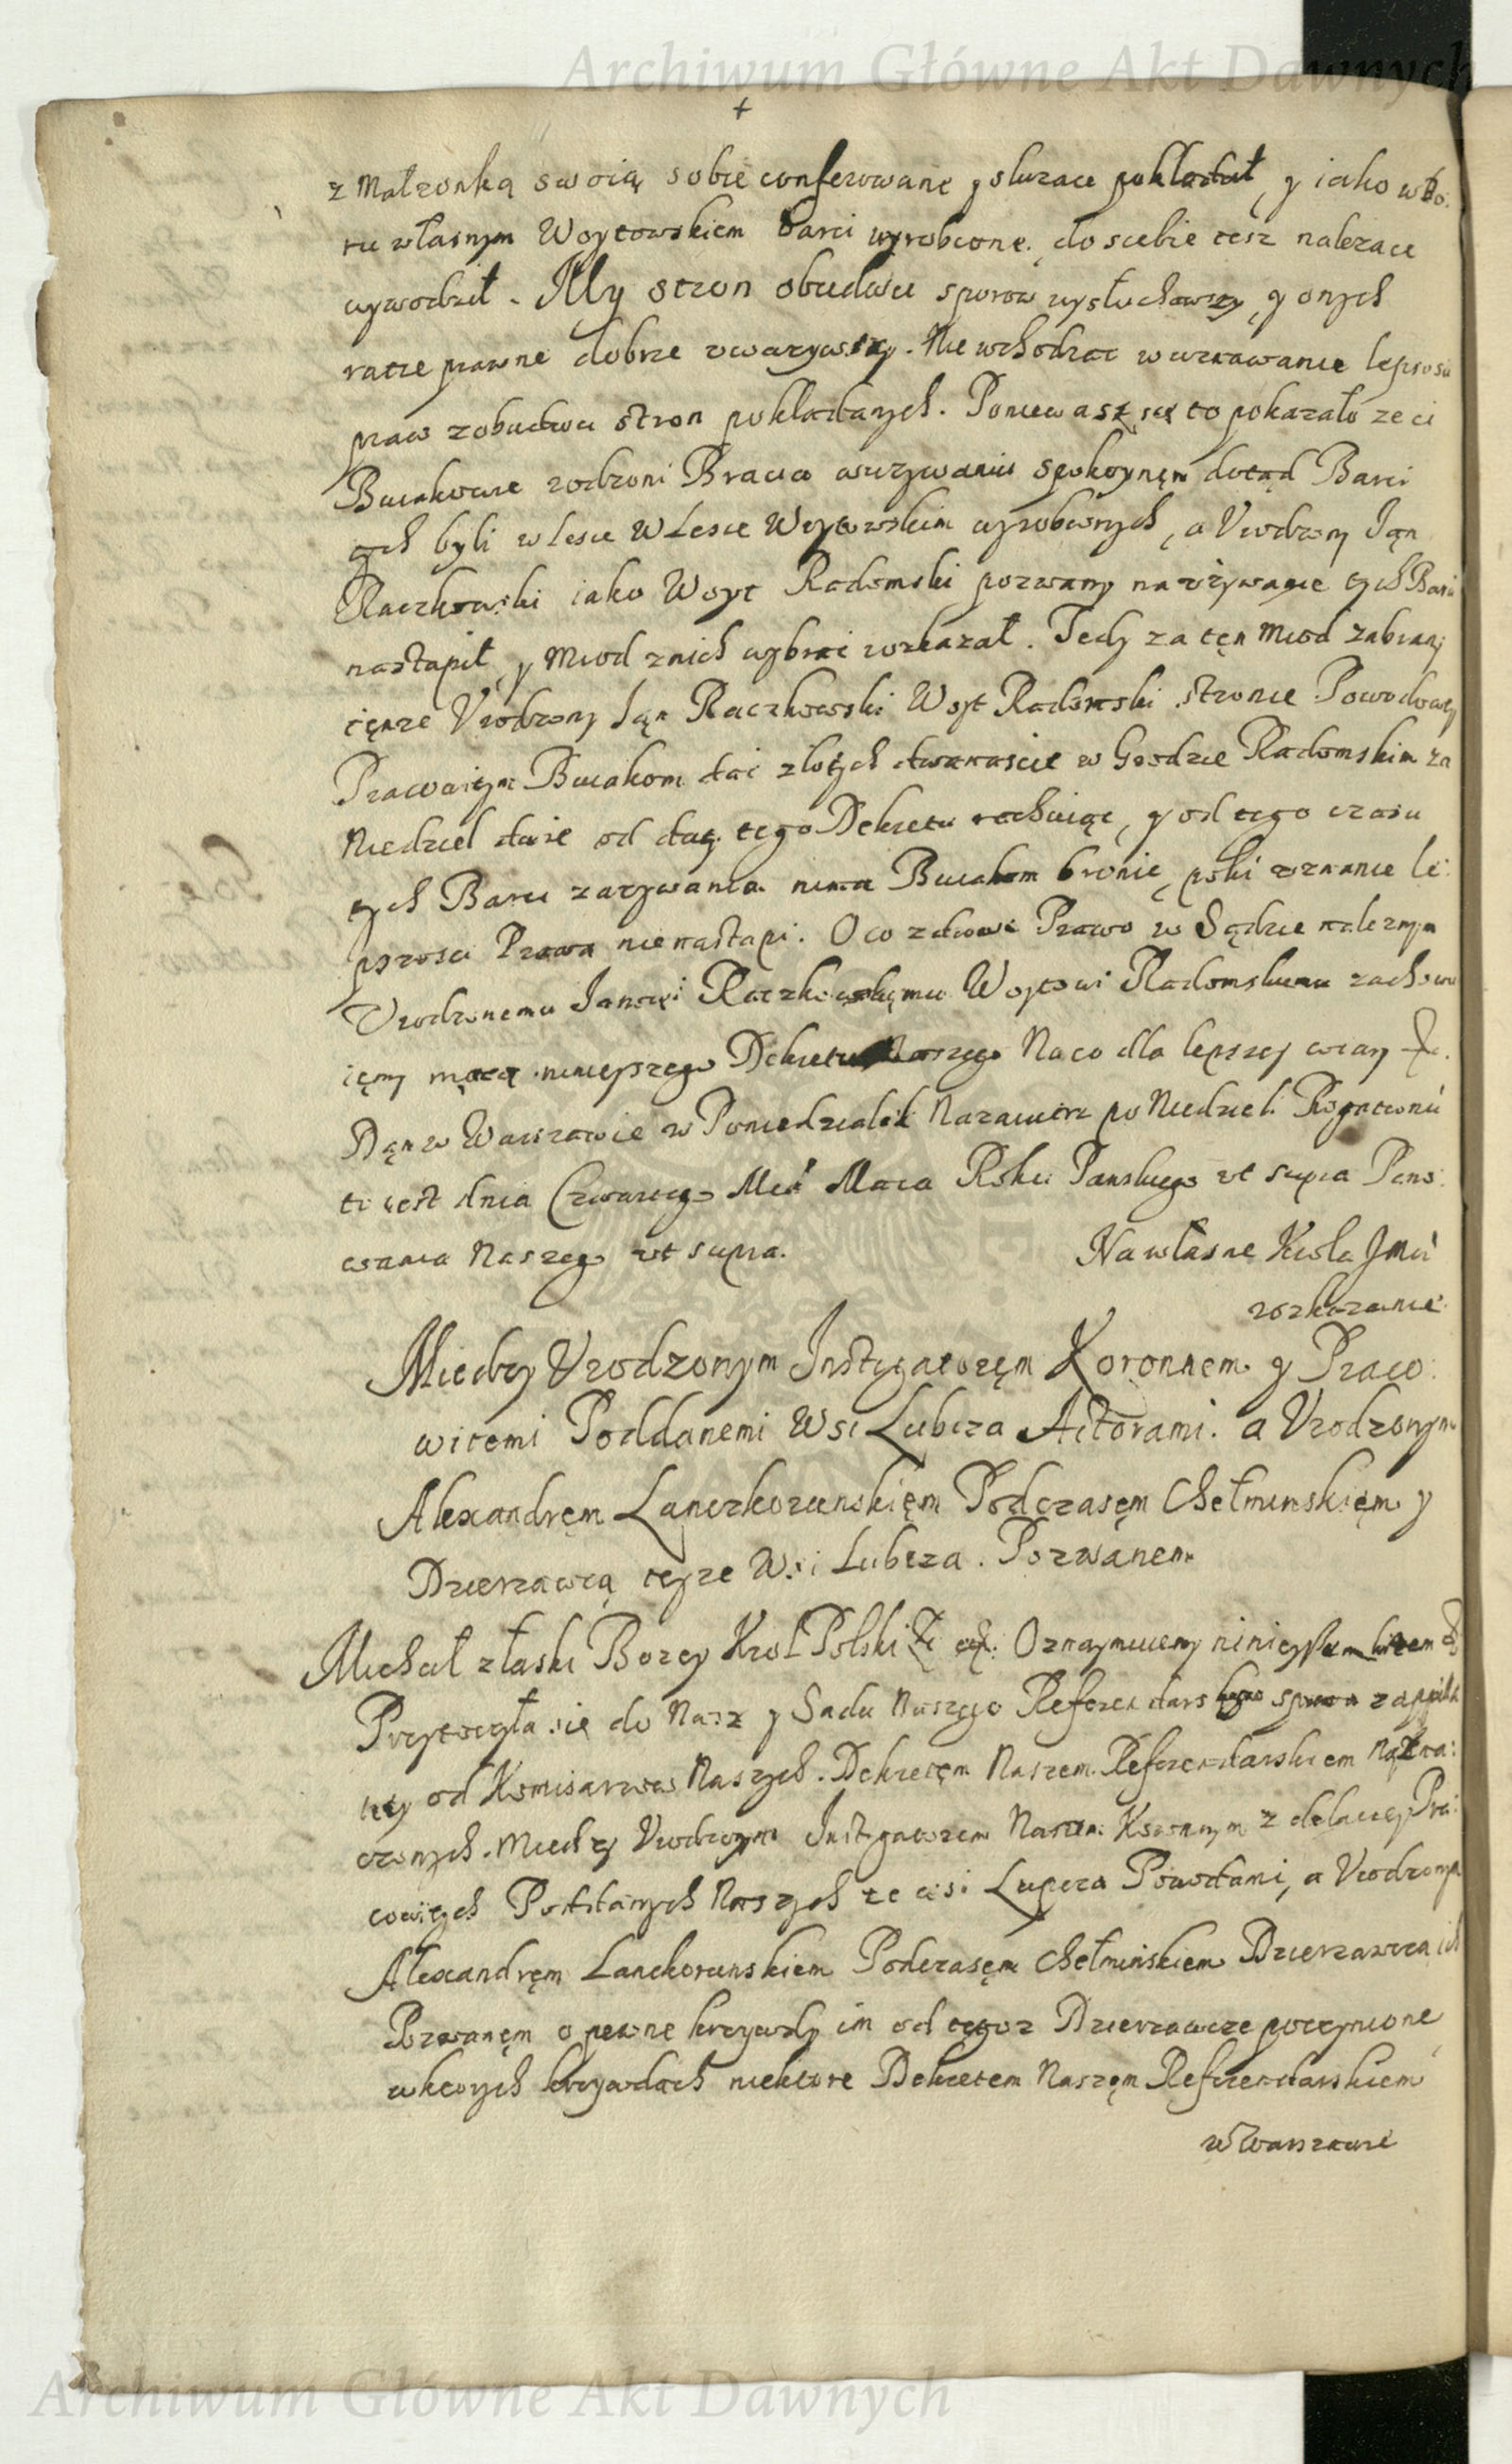 Archiwum Główne Akt Dawnych
z Małzonką swoią sobie conferowane y sluzace pokładał, y iako w Bo:
ru własnym Woytowskiem Barci wyrobione, do siebie tesz nalezace
wywodził. My stron obudwu sporow wysłuchawszy, y onych
racie prawne dobrze vwazywszy. Nie wchodzac w uznawanie lepszosci
praw z obudwu stron pokładanych. Poniewasz się to pokazało ze ci
Bucakowie rodzeni Bracia w uzywaniu spokoynęm dotąd Barci
tych byli w lesie W Lesie Woytowskim wyrobionych, a Vrodzony Jąn
Raczkowski iako Woyt Radomski pozwany na vżywanie tych Barci
nastąpił, y Miod z nich wybrac roskazał. Tedy za tęn Miod zabrany
tęnze Vrodzony Jąn Raczkowski Woyt Radomski stronie Powodowey
Pracowitym Bucakom dac złotych dwanascie w Grodzie Radomskim za
Niedziel dwie od daty tego Dekretu rachuiąc, y od tego czasu
tych Barci zazywania nima Bucakom bronic, poki uznanie le:
pszosci Prawa nie nastąpi. O co zdrowe Prawo w Sądzie naleznym
Vrodzonemu Janowi Raczkowskiemu Woytowi Radomskiemu zachowu
ięmy mocą ninieyszego Dekretu Naszego Na co dla lepszey wiary &c.
Dąn w Warszawie w Poniedziałek Nazaiutrz po Niedzieli Rogationū
to iest dnia Czwartego Mca Maia Roku Panskiego vt supra Pano:
wania Naszego vt supra.
Na własne Krola Jmci
roskazanie
Miedzy Vrodzonym Instygatoręm Koronnem y Praco:
witemi Poddanemi Wsi Lubcza Actorami. a Vrodzonym
Alexandręm Lanczkorunskięm Podczasęm Chełminskięm y
Dzierzawcą teyze Wsi Lubcza. Pozwanem
Michał z łaski Bozey Krol Polski &c &c. Oznaymuiemy ninieyszem listem &c
Przytoczyła się do Nasz y Sadu Naszego Referendarskiego sprawa z appella
tiey od Komisarzow Naszych. Dekretęm Naszem Referendarskiem naznа:
czonych. Miedzy Vrodzonym Instygatorem Naszem Koronnym z delatiey Pra:
cowitych Poddanych Naszych ze wsi Lupcza Powodami, a Vrodzonym
Alexandręm Lanckorunskiem Podczasęm Chełminskiem Dzierzawca ich
Pozwanęm o pewne krzywdy im od tegoz Dzierzawcze poczynione,
w ktorych krzywdach niektore Dekretem Naszęm Referendarskiem
w Warszawie
Archiwum Główne Akt Dawnych